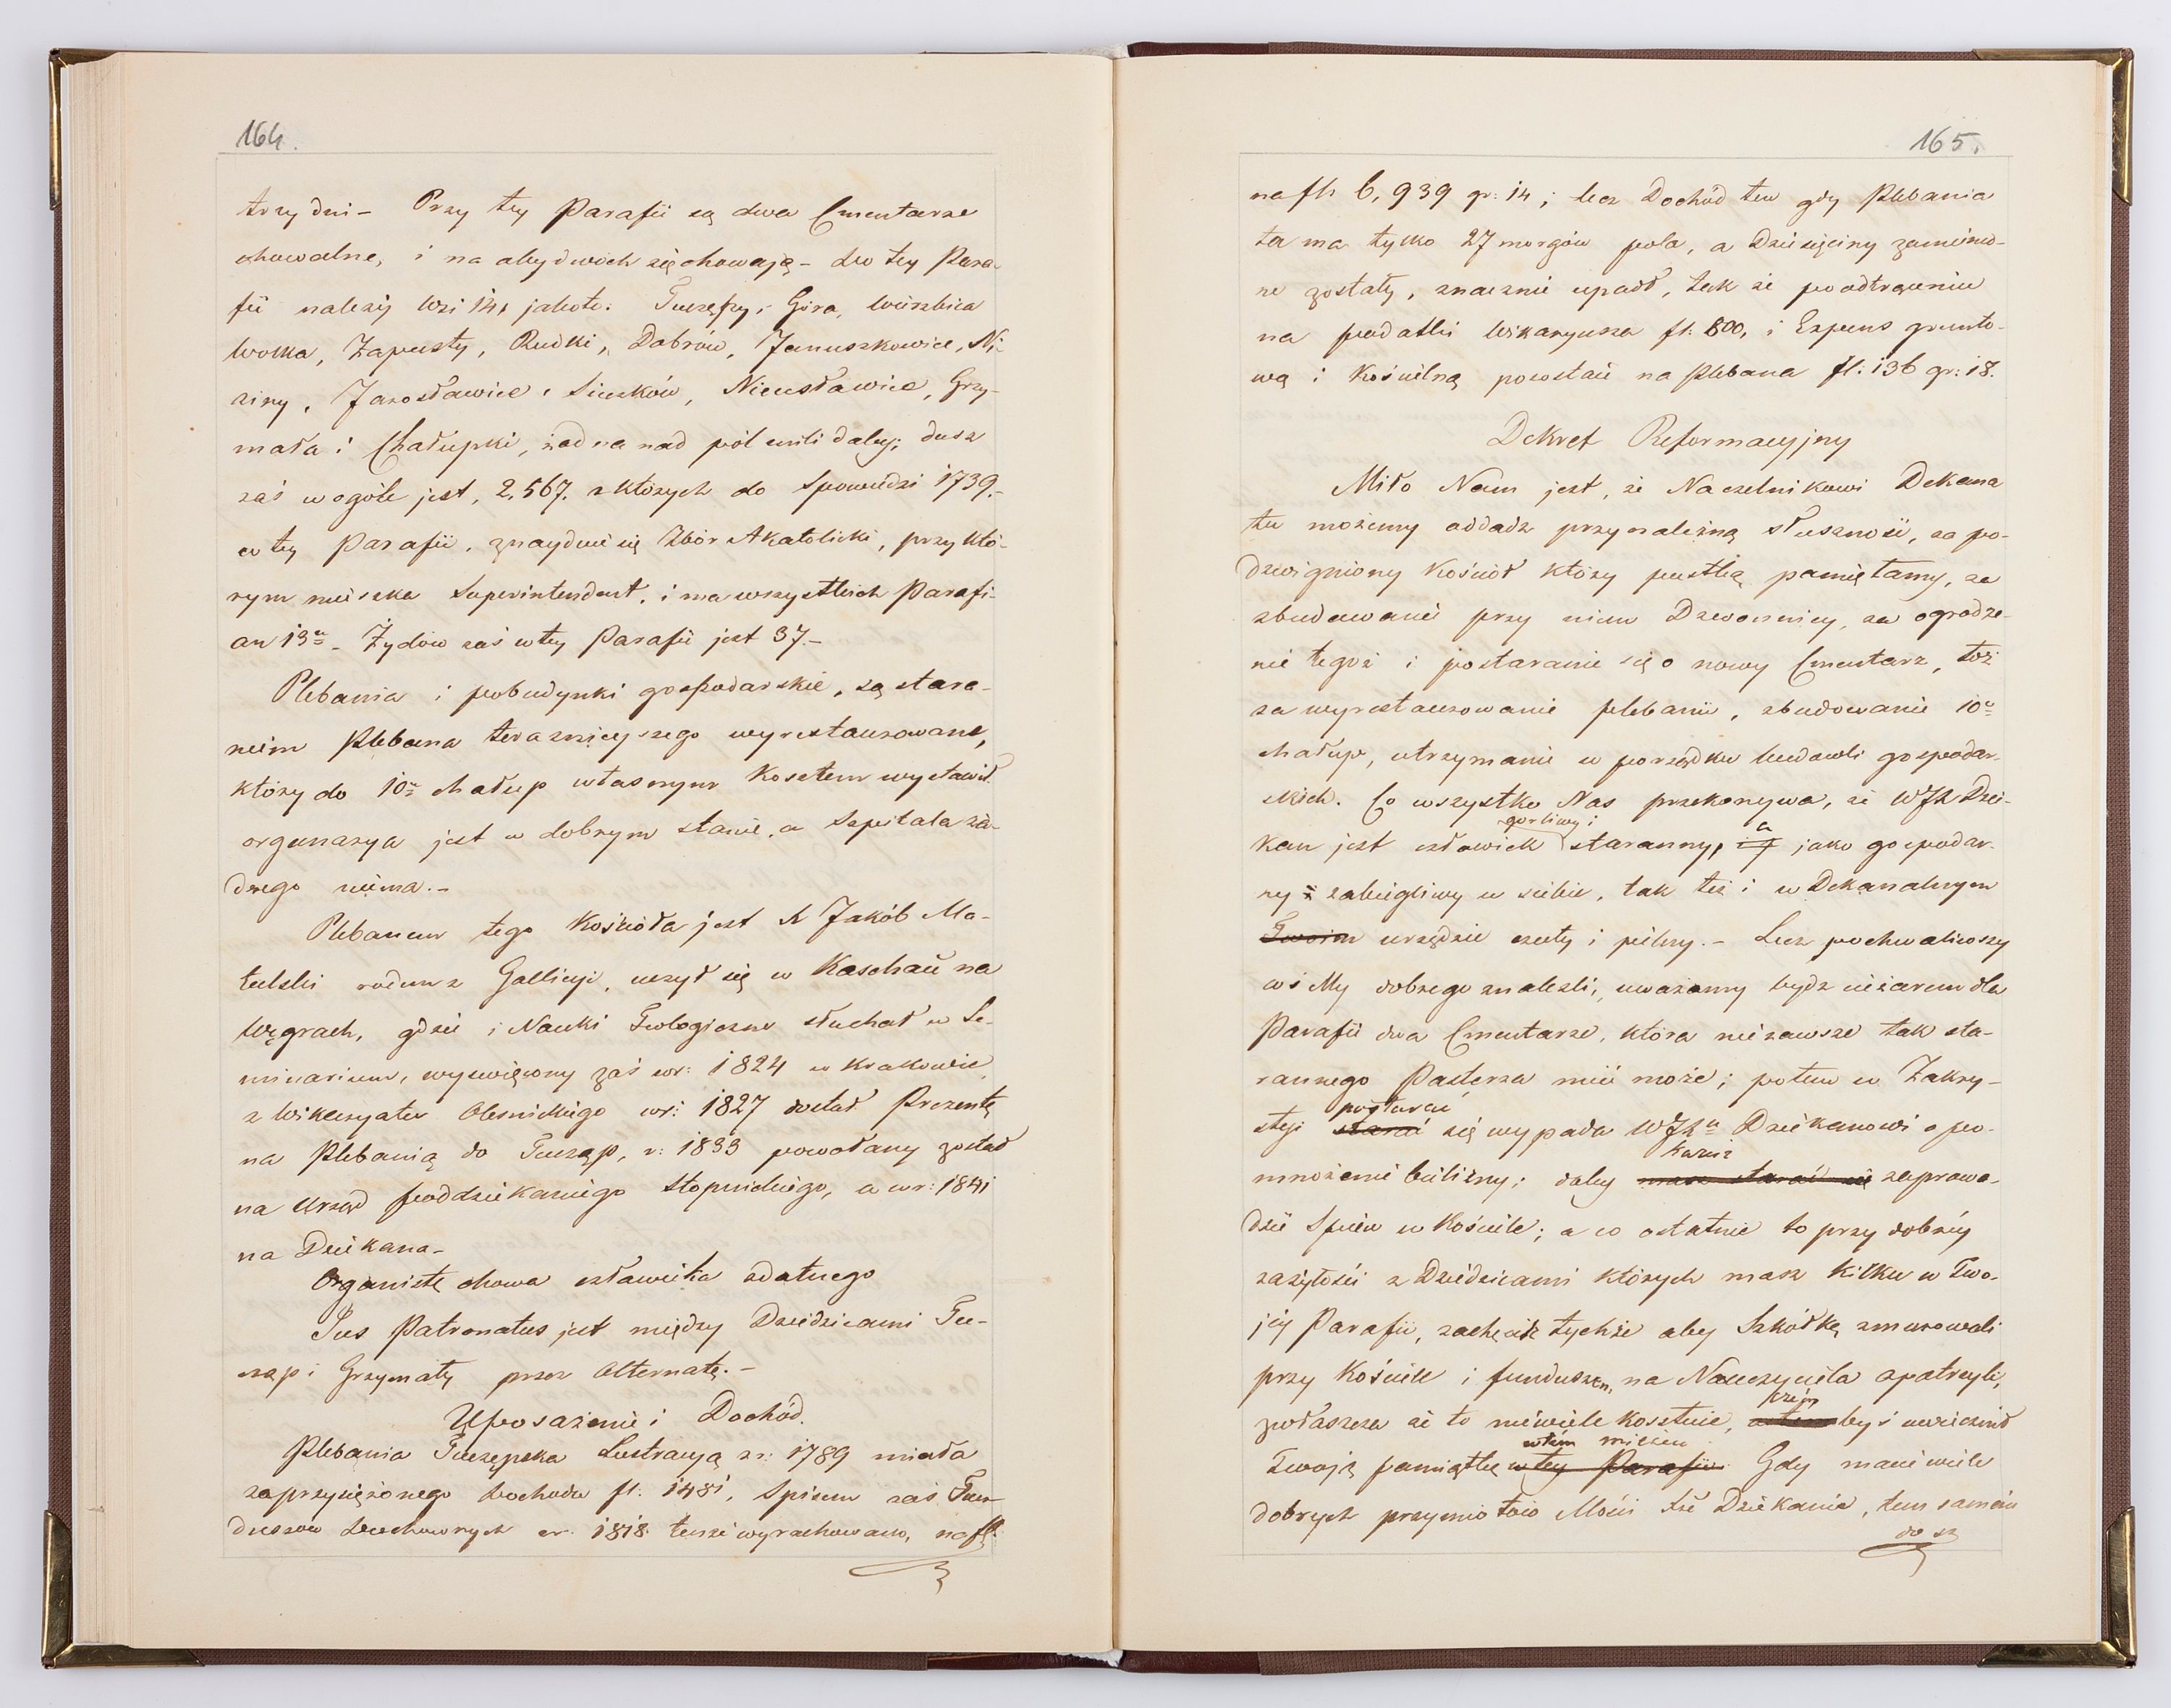 164.
trzy dni – Przy tey Parafii są dwa Cmentarze
chowalne, i na obydwoch się chowają – do tey Para-
fii należy wsi 14, jakoto: Tuczępy, Góra, Wierzbica
Wolka, Zapusty, Rudki, Dobrów, Januszkowice, Ni-
ziny, Jarosławice, Sieczków, Nieciesławice, Grzy-
mała i Chałupki, żadna nad pół mili daley; dusz
zaś w ogóle jest, 2,567. z których do Spowiedzi 1739.–
w tey Parafii, znayduie się Zbór Akatolicki, przy któ-
rym mieszka Superintendent, i ma wszystkich Parafi-
an 13u – Żydów zaś w tey Parafii jest 37.–
Plebania i pobudynki gospodarskie, są stara-
niem Plebana teraznieyszego wyrestaurowane,
który do 10u chałup własnym kosztem wystawił
organarya jest w dobrym stanie, a Szpitala ża-
dnego niéma.–
Plebanem tego Kościoła jest X Jakób Ma-
tulski rodem z Gallicyi, uczył się w Kaschau na
Węgrach, gdzie i Nauki Teologiczne słuchał w Se-
minarium, wyswięcony zaś w r: 1824 w Krakowie
z Wikaryatu Olesnickiego w r: 1827 dostał Prezentę
na Plebanią do Tucząp, r: 1833 powołany został
na Urząd poddziekaniego Stopnickiego, a w r: 1841
na Dziekana –
Organistę chowa człowieka zdatnego
Jus Patronatus jest między Dziedzicami Tu-
cząp i Grzymały przez Alternatę.–
Uposażenie i Dochód.
Plebania Tuczępska Lustracyą z r: 1789 miała
zaprzysiężonego dochodu fl: 1481, Spisem zaś Fun-
duszow Duchownych w r: 1818 tenże wyrachowano, na fl:
165.
na fl: 6,939 gr: 14; lecz Dochód ten gdy Plebania
ta ma tylko 27 morgów pola, a Dziesięciny zamienio-
ne zostały, znacznie upadł, tak że po odtrąceniu
na podatki Wikaryusza fl: 800, i Expens grunto-
wą i Kościelną pozostaie na Plebana fl: 136 gr: 18.
Dekret Reformacyjny
Miło Nam jest, że Naczelnikowi Dekana
tu możemy oddadz przynależną słuszność, za po-
dzwigniony Kościół który pustką pamiętamy, za
zbudowanie przy nim Dzwonnicy, za ogrodze-
nie tegoż i postaranie się o nowy Cmentarz, toż
za wyrestaurowanie plebanii, zbudowanie 10u
chałup, utrzymanie w porządku budowli gospodar-
skich. Co wszystko Nas przekonywa, że WJX Dzie-
gorliwy i
kan jest człowiek staranny, a jako gospodar-
ny i zabiegliwy u siebie, tak też i w Dekanalnym
Twoim urzędzie czuły i pilny.– Lecz pochwaliwszy
coś My dobrego znalezli, uważamy bydz ciężarem dla
Parafii dwa Cmentarze, która nie zawsze tak sta-
rannego Pasterza mieć może; potem w Zakry-
postarać
styi starać się wypada WJXu Dziekanowi o po-
Każesz
mnożenie bielizny; daley masz starać się zaprowa-
dzić Spiew w Kościele; a co ostatnie to przy dobréy
zażyłości z Dziedzicami których masz kilku w Two-
jéy Parafii, zachęcisz tychże aby Szkółkę zmurowali
przy Kościele i funduszem na Nauczyciela opatrzyli,
czém
zwłaszcza że to niewiele kosztuie, byś uwiecznił
w tém mieiscu
Twoją pamiątkę w tey Parafii. Gdy macie wiele
dobrych przymiotów Mości Xże Dziekanie, tem samém
do sz